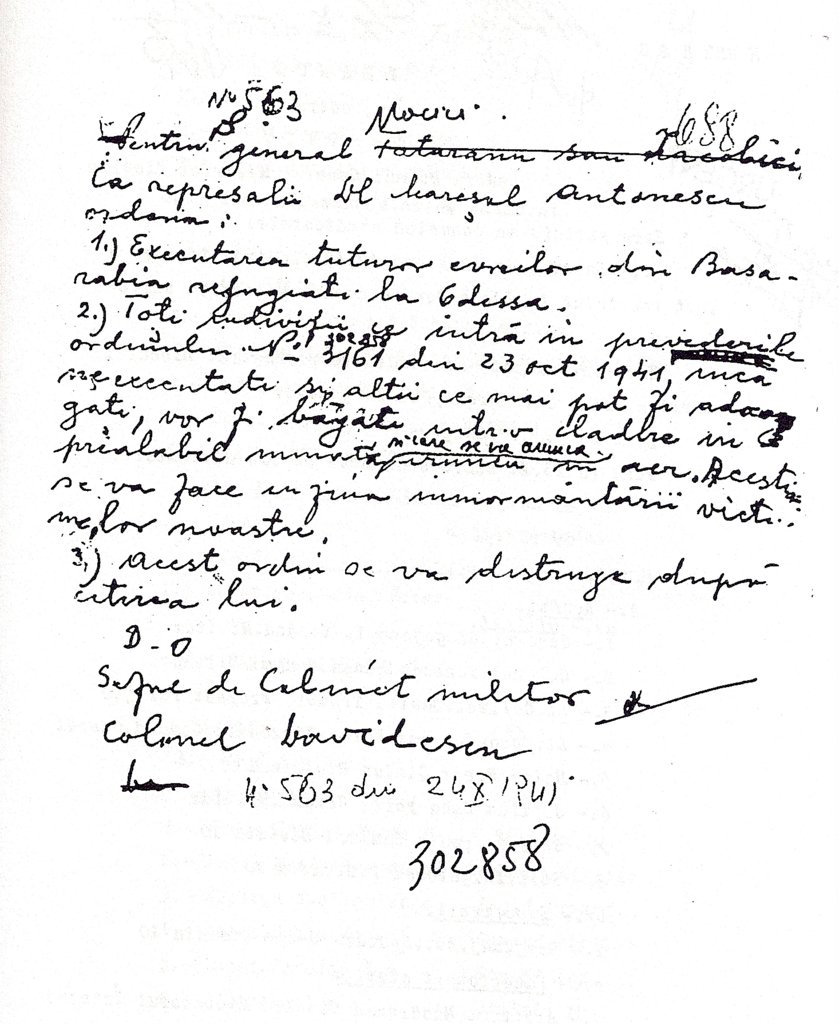 No 563 Mocici.
658
Pentru general Tatoranu sau Iacobici,
Ca represalii Dl Mareșal Antonescu
ordona:
1.) Executarea tuturor evreilor din Basa-
rabia refugiati la Odessa.
2.) Toți indivizii ce intră in prevederile
302858
ordinului No 3161 din 23 oct 1941, inca
neexecutati si altii ce mai pot fi adaou
gati, vor fi băgăti intr-o cladire in
prealabil minata si care se va arunca in aer. Acest
se va face in ziua inmormântării victi-
melor noastre.
3.) Acest ordin se va distruge după
citirea lui.
D-O
Sefue de Cabinet militar
Colonel Davidescu
No. 563 din 24 X 1941
302858